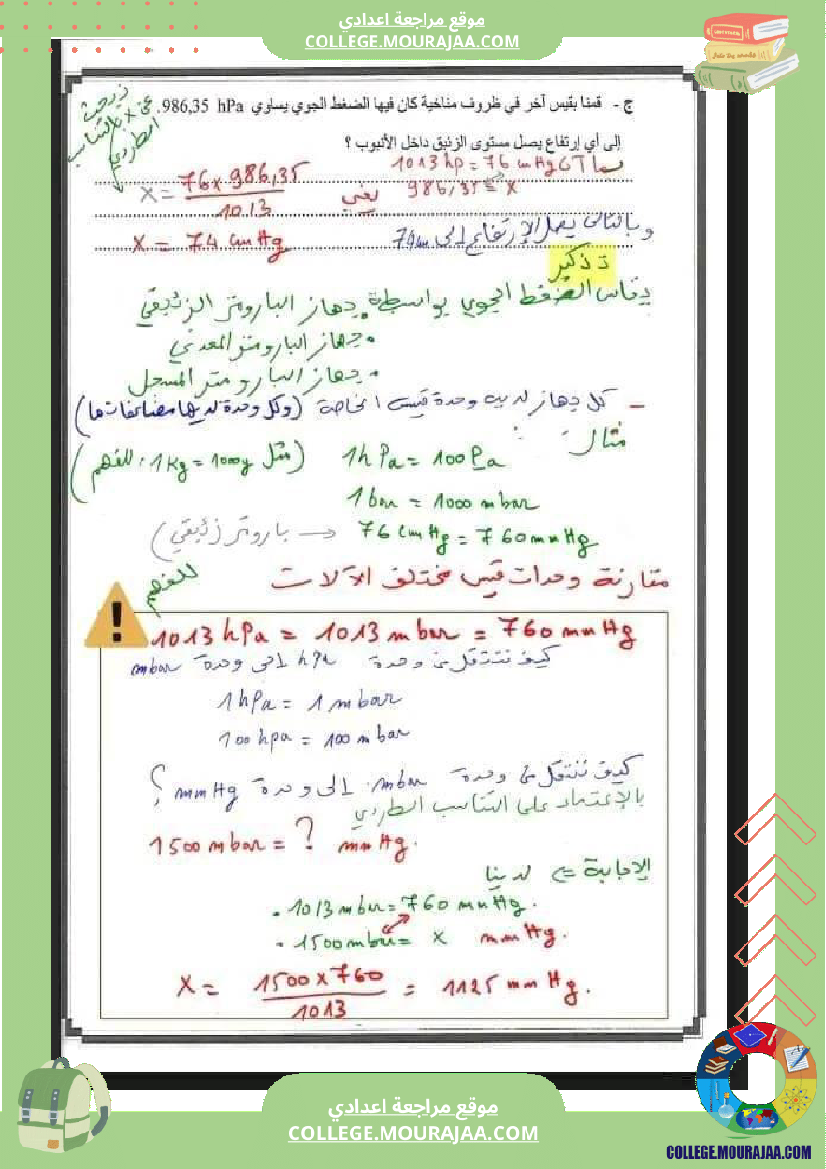 موقع مراجعة اعدادي
COLLEGE.MOURAJAA.COM
ج - قمنا بقيس آخر في ظروف مناخية كان فيها الضغط الجوي يساوي 986,35 hPa.
إلى أي إرتفاع يصل مستوى الزئبق داخل الأنبوب ؟
نبحث عن x بالتناسب الطردي
بما أن 1013 hp = 76 cmHg
986,35 = x
يعني
X = 76 x 986,35 / 1013
X = 74 cmHg
وبالتالي يصل الإرتفاع إلى 74cm
تذكير
يقاس الضغط الجوي بواسطة • جهاز البارومتر الزئبقي
• جهاز البارومتر المعدني
• جهاز البارومتر المسجل
- كل جهاز لديه وحدة قيس الخاصة (وكل وحدة لديها مضاعفاتها)
مثال :
1hPa = 100Pa (مثل 1Kg = 1000g للفهم)
1bar = 1000 mbar
76 cmHg = 760mmHg → بارومتر زئبقي)
مقارنة وحدات قيس مختلف الآلات
للفهم
1013 hPa = 1013 mbar = 760 mmHg
كيف ننتقل من وحدة hPa إلى وحدة mbar
1hPa = 1mbar
100 hpa = 100 mbar
كيف ننتقل من وحدة mbar إلى وحدة mmHg ؟
بالإعتماد على التناسب الطردي
1500 mbar = ? mmHg.
الإجابة => لدينا
• 1013 mbar = 760 mmHg.
• 1500 mbar = X mmHg.
X = 1500 x 760 / 1013 = 1125 mmHg.
موقع مراجعة اعدادي
COLLEGE.MOURAJAA.COM
COLLEGE.MOURAJAA.COM